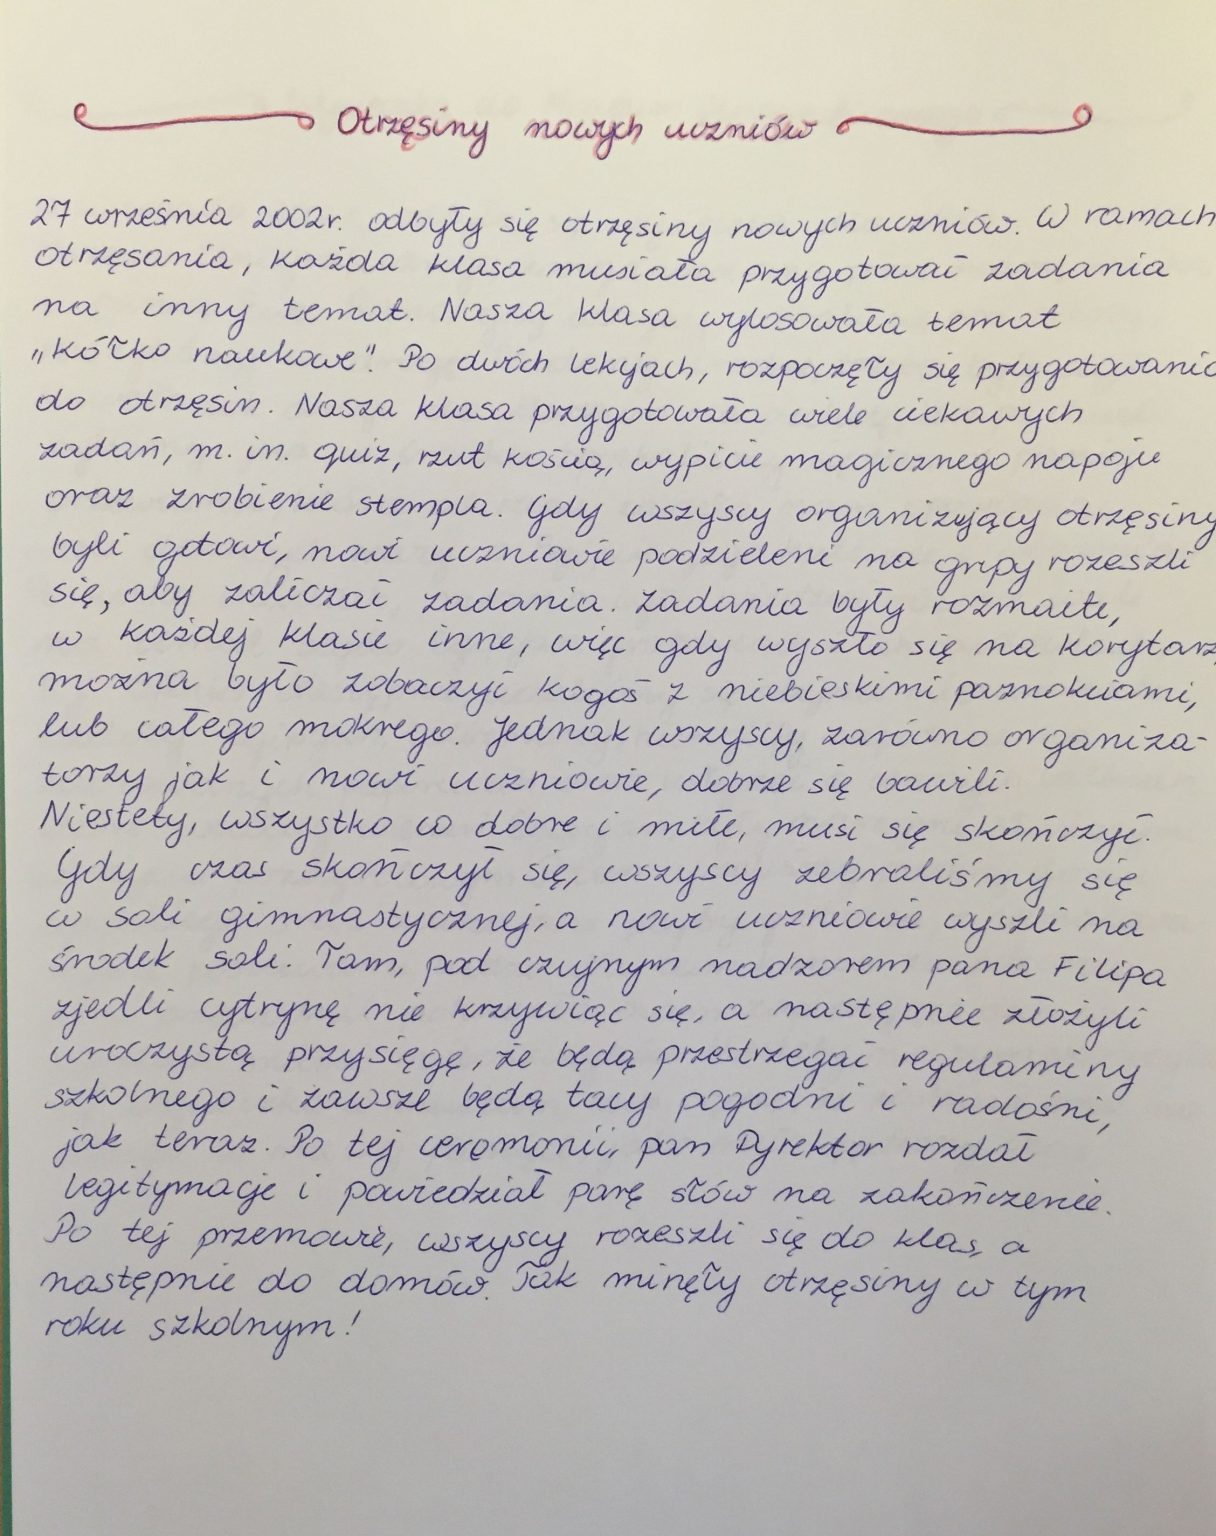 Otrzęsiny nowych uczniów
27 września 2002r. odbyły się otrzęsiny nowych uczniów. W ramach
otrzęsania, każda klasa musiała przygotować zadania
na inny temat. Nasza klasa wylosowała temat
„Kółko naukowe". Po dwóch lekcjach, rozpoczęły się przygotowania
do otrzęsin. Nasza klasa przygotowała wiele ciekawych
zadań, m. in. quiz, rzut kością, wypicie magicznego napoju
oraz zrobienie stempla. Gdy wszyscy organizujący otrzęsiny
byli gotowi, nowi uczniowie podzieleni na grupy rozeszli
się, aby zaliczać zadania. Zadania były rozmaite,
w każdej klasie inne, więc gdy wyszło się na korytarz,
można było zobaczyć kogoś z niebieskimi paznokciami,
lub całego mokrego. Jednak wszyscy, zarówno organiza-
torzy jak i nowi uczniowie, dobrze się bawili.
Niestety, wszystko co dobre i miłe, musi się skończyć.
Gdy czas skończył się, wszyscy zebraliśmy się
w sali gimnastycznej, a nowi uczniowie wyszli na
środek sali. Tam, pod czujnym nadzorem pana Filipa
zjedli cytrynę nie krzywiąc się, a następnie złożyli
uroczystą przysięgę, że będą przestrzegać regulaminy
szkolnego i zawsze będą tacy pogodni i radośni,
jak teraz. Po tej ceremonii, pan Dyrektor rozdał
legitymacje i powiedział parę słów na zakończenie.
Po tej przemowie, wszyscy rozeszli się do klas, a
następnie do domów. Tak minęły otrzęsiny w tym
roku szkolnym!